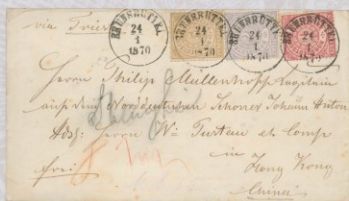 via Triest
BRUNSBÜTTEL
24
1
1870
BRUNSBÜTTEL
24
1
1870
BRUNSBÜTTEL
24
1
1870
Herrn Philip Mullenhoff Capitain
auf dem Norddeutschen Schoner Johann Anton
Adr: Herrn Wm Pustau et Comp
in
frei Hong Kong
China